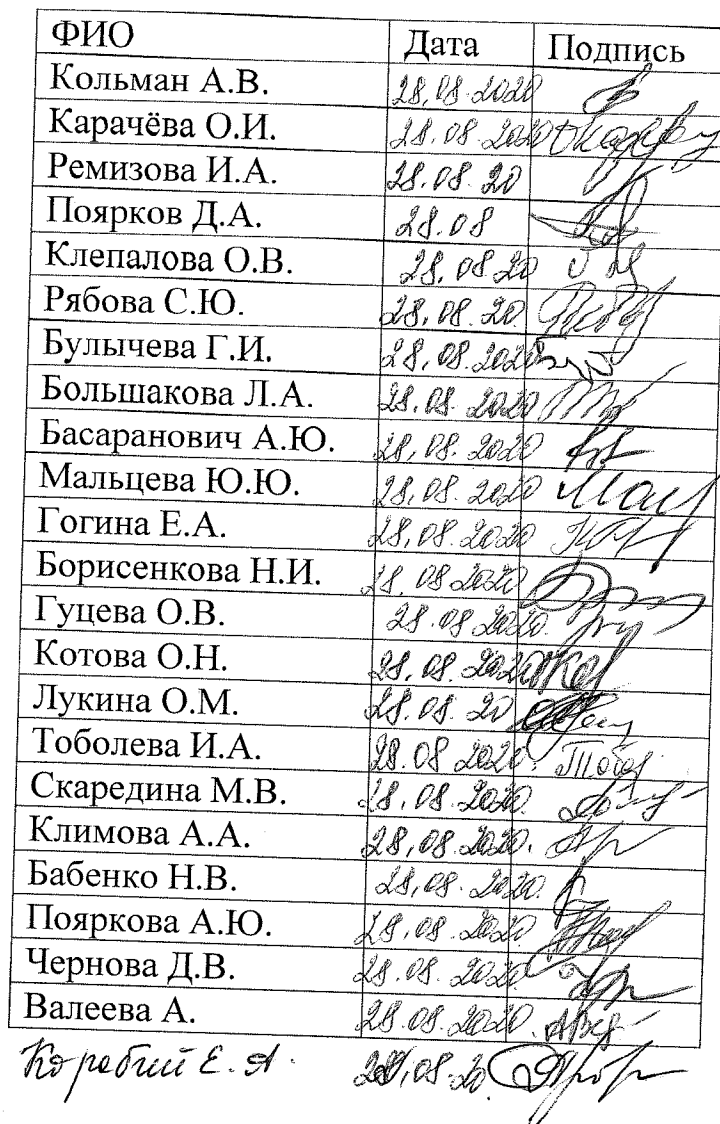 ФИО Дата Подпись
Кольман А.В. 28.08.2020
Карачёва О.И. 28.08.2020
Ремизова И.А. 28.08.20
Поярков Д.А. 28.08
Клепалова О.В. 28.08.20
Рябова С.Ю. 28.08.20
Булычева Г.И. 28.08.2020
Большакова Л.А. 28.08.2020
Басаранович А.Ю. 28.08.2020
Мальцева Ю.Ю. 28.08.2020
Гогина Е.А. 28.08.2020
Борисенкова Н.И. 28.08.2020
Гуцева О.В. 28.08.2020.
Котова О.Н. 28.08.2020
Лукина О.М. 28.08.20
Тоболева И.А. 28.08.2020.
Скаредина М.В. 28.08.2020.
Климова А.А. 28.08.2020.
Бабенко Н.В. 28.08.2020.
Пояркова А.Ю. 28.08.2020.
Чернова Д.В. 28.08.2020.
Валеева А. 28.08.2020.
Е.А. 28.08.20